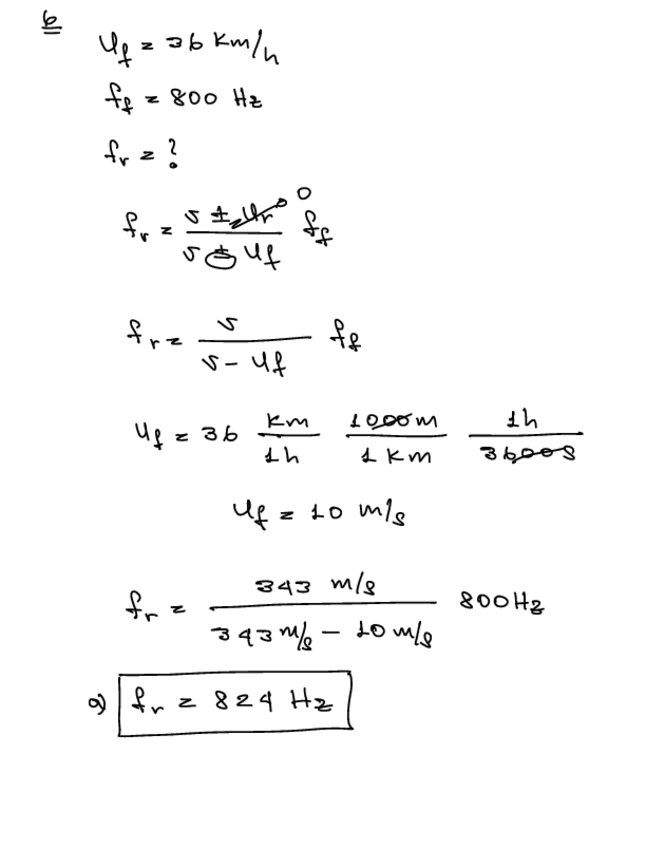 6
u_f = 36 km/h
f_f = 800 Hz
f_r = ?
f_r = (v ± u_r → 0) / (v ± u_f) f_f
f_r = v / (v - u_f) f_f
u_f = 36 km/1h 1000m/1km 1h/3600s
u_f = 10 m/s
f_r = 343 m/s / (343 m/s - 10 m/s) 800 Hz
a) f_r = 824 Hz